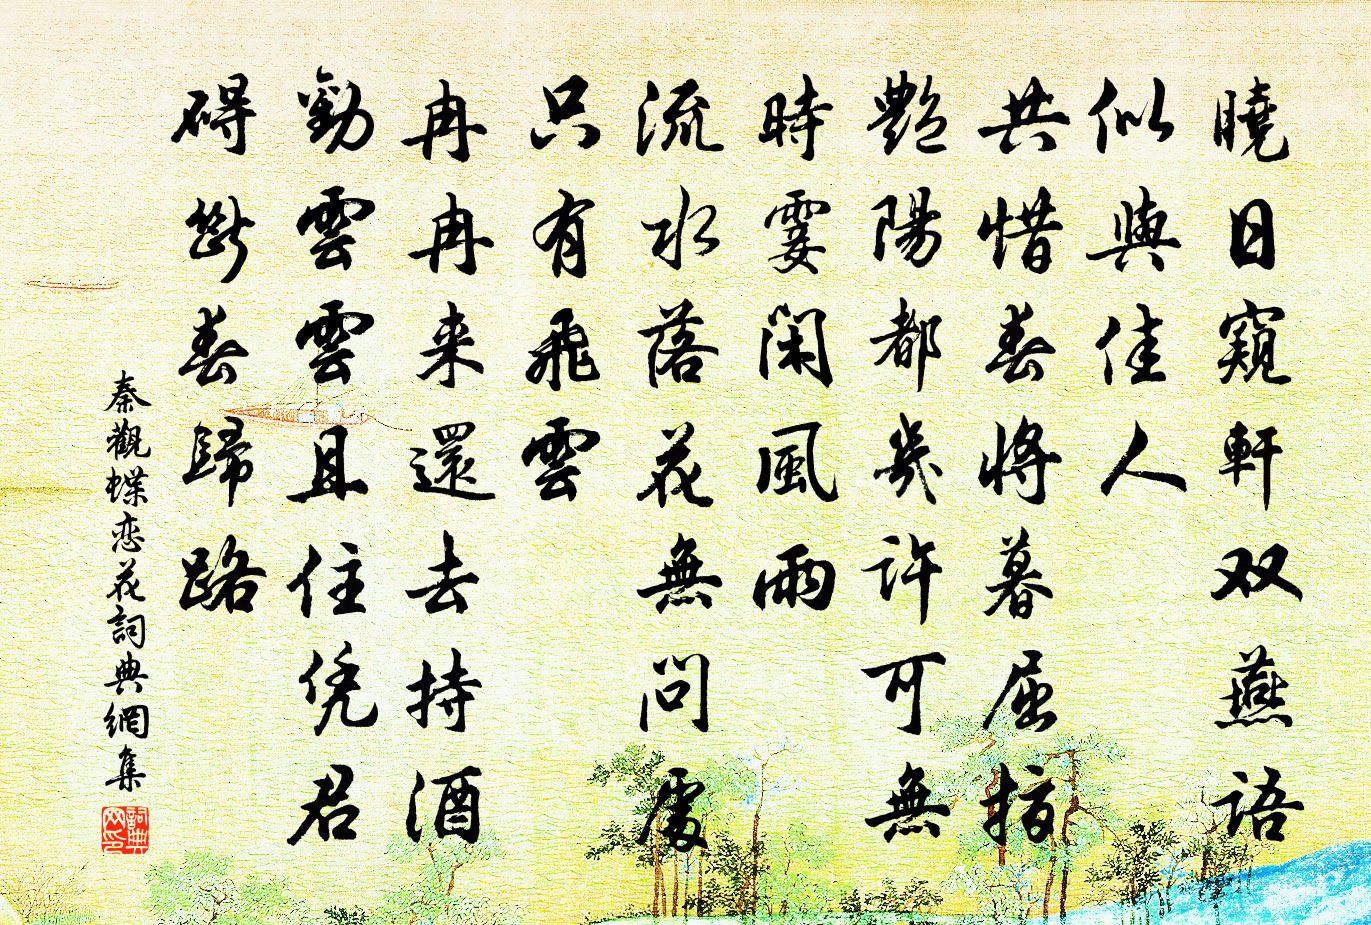 曉日窺軒双燕語
似與佳人
共惜春將暮屈指
艷陽都幾許可無
時霎閑風雨
流水落花無問處
只有飛雲
冉冉来還去持酒
勸雲雲且住凭君
碍斷春歸路
秦觀蝶恋花詞典網集
詞典網印